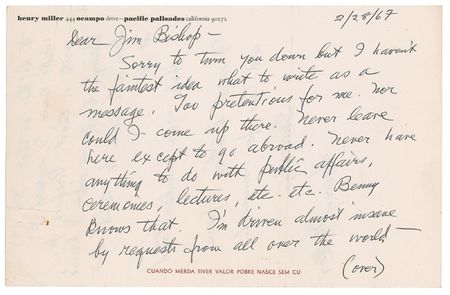 henry miller 444 ocampo drive—pacific palisades california 90272
2/28/67
Dear Jim Bishop —
Sorry to turn you down but I haven't
the faintest idea what to write as a
message. Too pretentious for me. Nor
could I come up there. Never leave
here except to go abroad. Never have
anything to do with public affairs,
ceremonies, lectures, etc. etc. Benny
knows that. I'm driven almost insane
by requests from all over the world —
(over)
CUANDO MERDA TIVER VALOR POBRE NASCE SEM CU